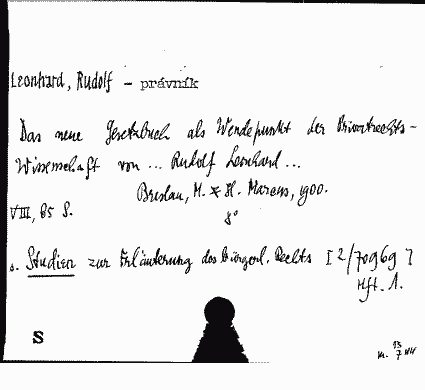 Leonhard, Rudolf – právník
Das neue Gesetzbuch als Wendepunkt der Privatrechts-
Wissenschaft von ... Rudolf Leonhard ...
Breslau, M. & H. Marcus, 1900.
VIII, 85 S. 8°
s. Studien zur Erläuterung des bürgerl. Rechts [2/7096g]
Hft. 1.
S